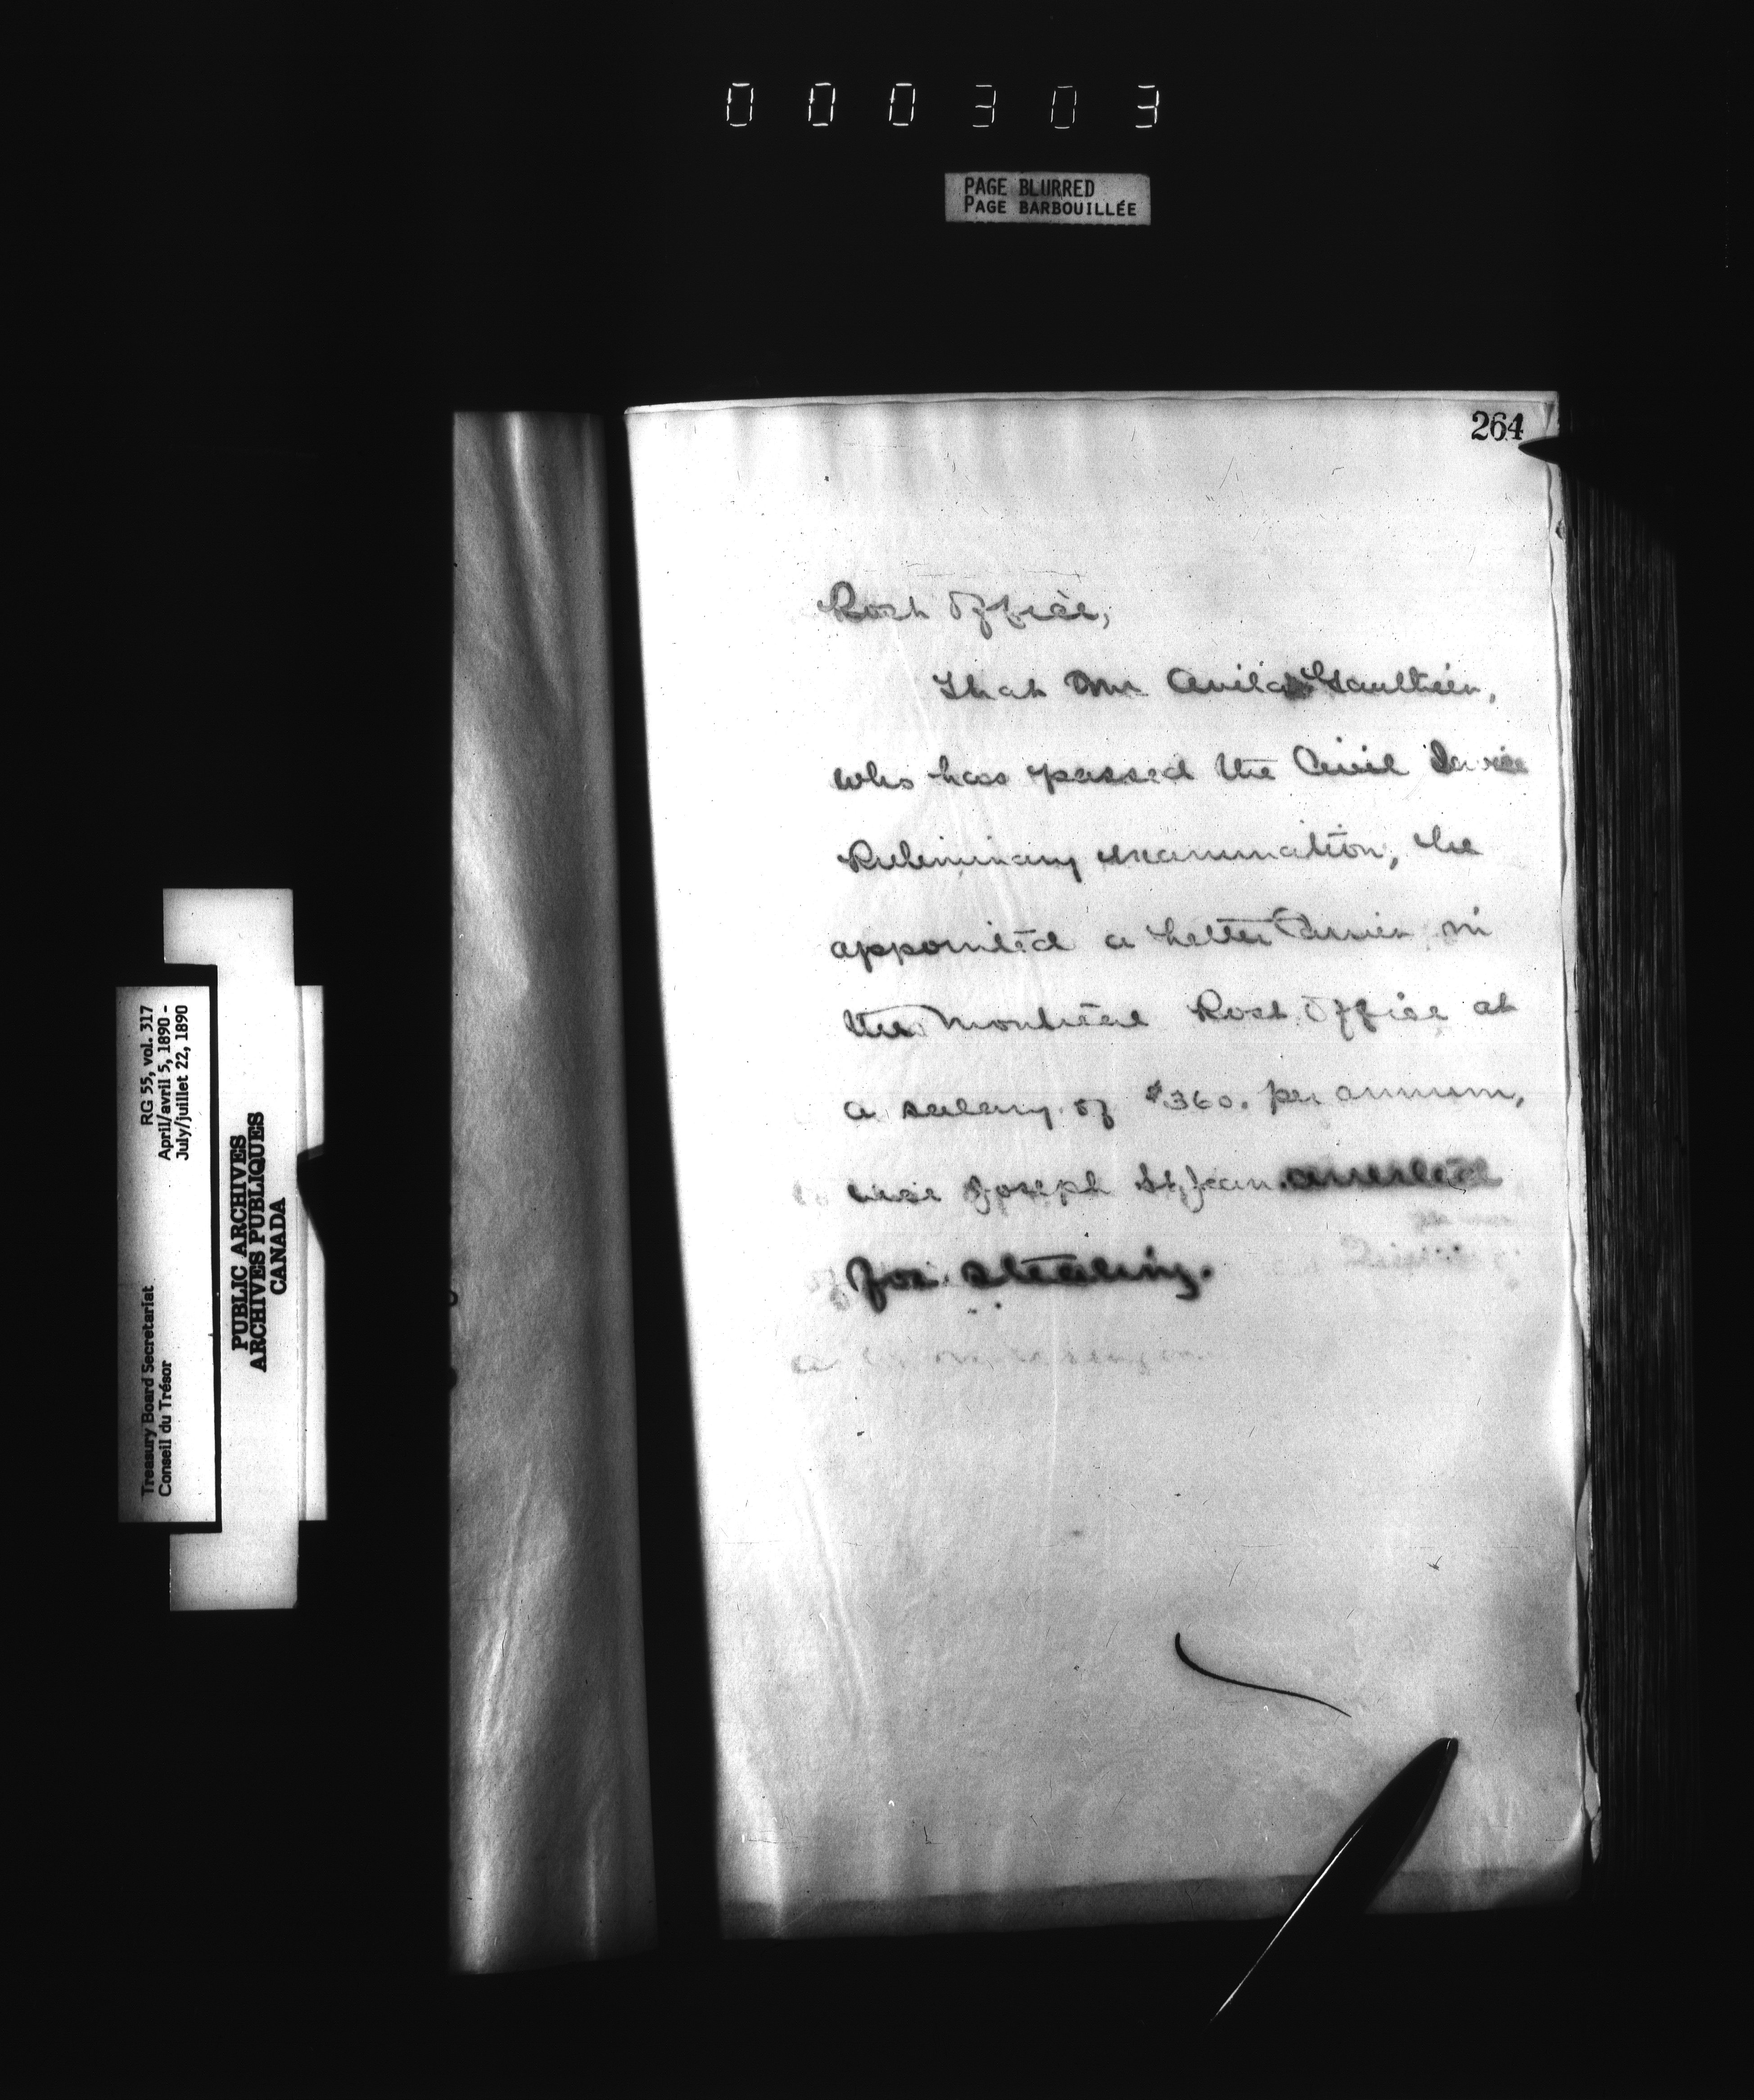 000303
PAGE BLURRED
PAGE BARBOUILLÉE
264
Post Office,
That Mr Avila Gaulthier,
who has passed the Civil Service
Preliminary examination, be
appointed a Letter Carrier in
the Montreal Post Office at
a salary of $360. per annum,
vice Joseph St Jean arrested
for stealing.
RG 55, vol. 317
April/avril 5, 1890 -
July/juillet 22, 1890
Treasury Board Secretariat
Conseil du Trésor
PUBLIC ARCHIVES
ARCHIVES PUBLIQUES
CANADA